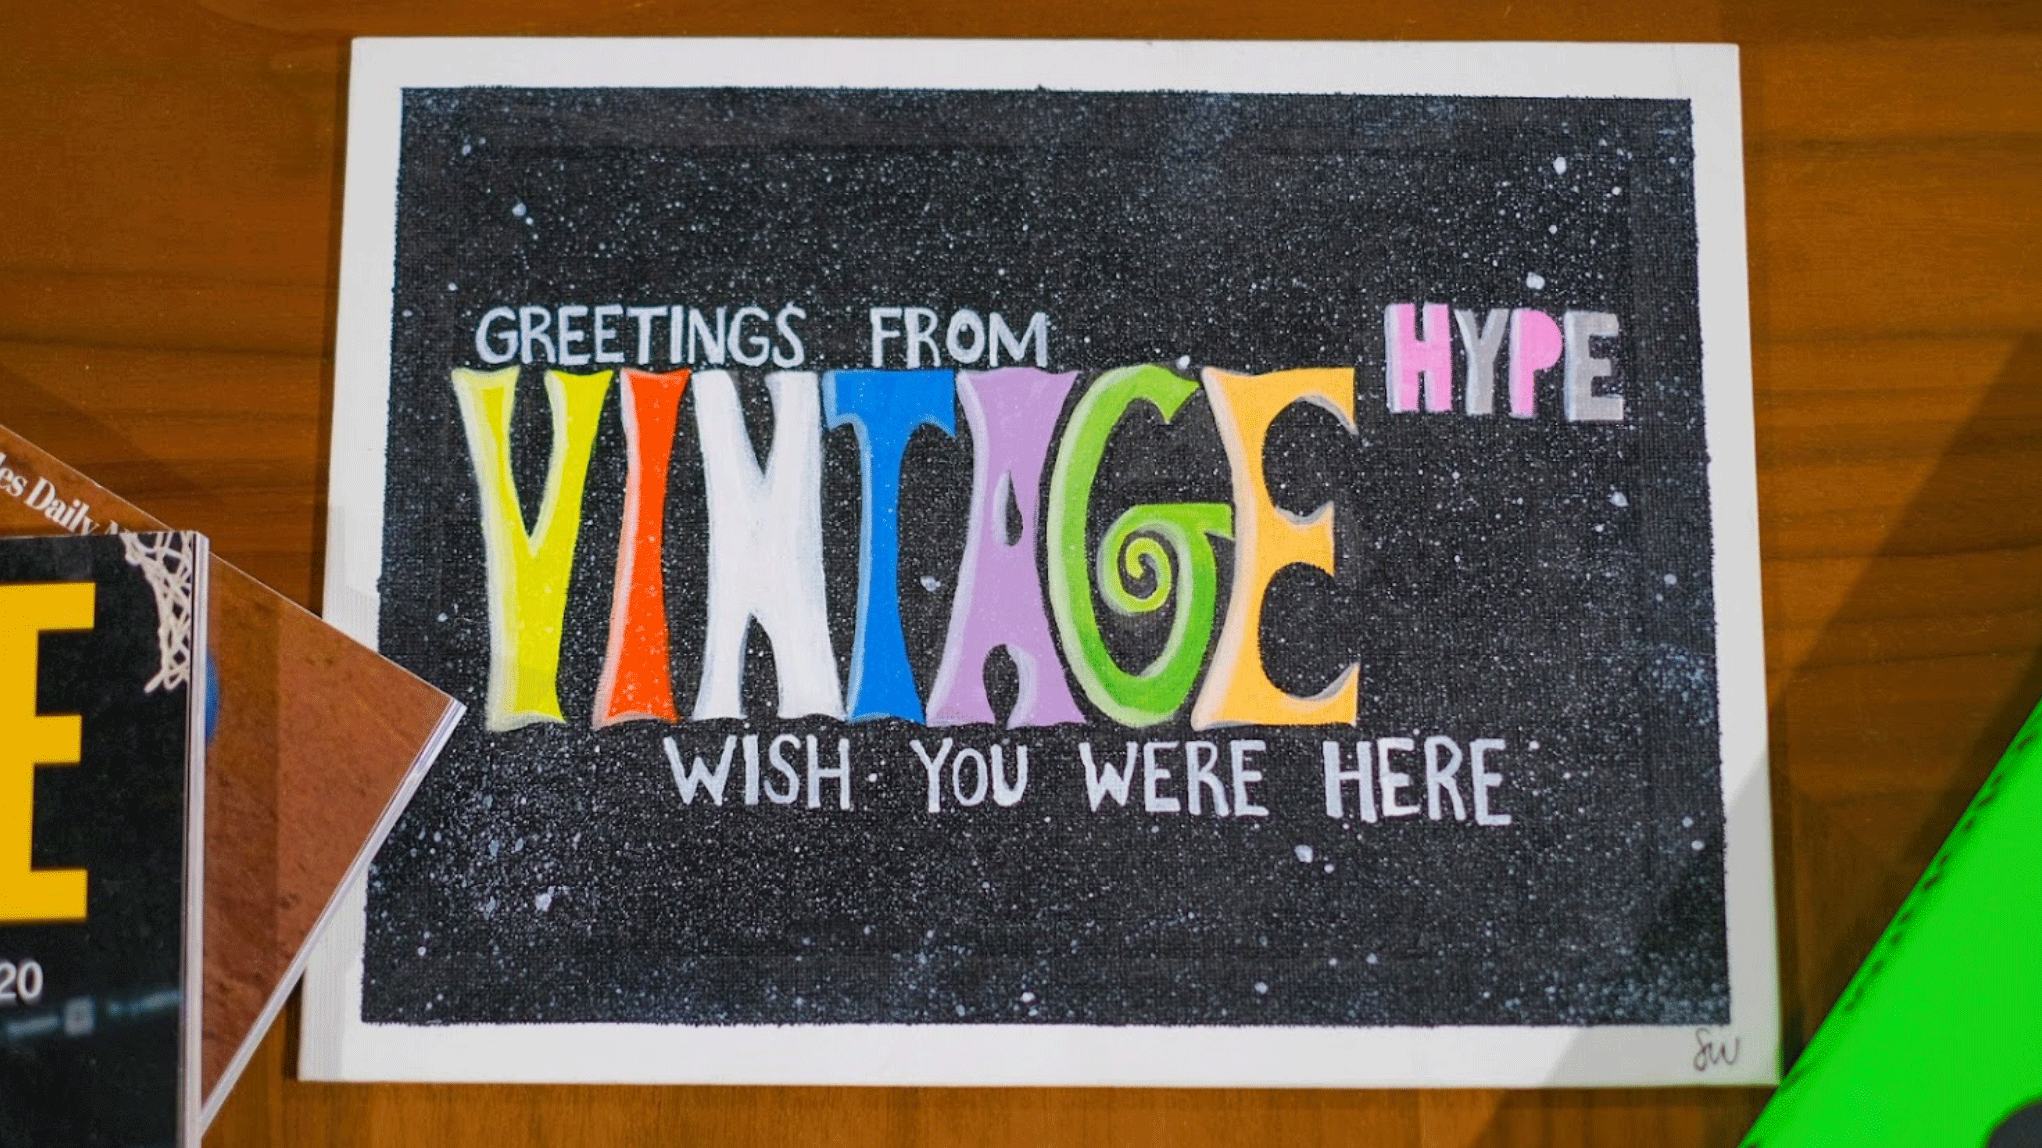 GREETINGS FROM
VINTAGE HYPE
WISH YOU WERE HERE
SW
les Daily
E
20